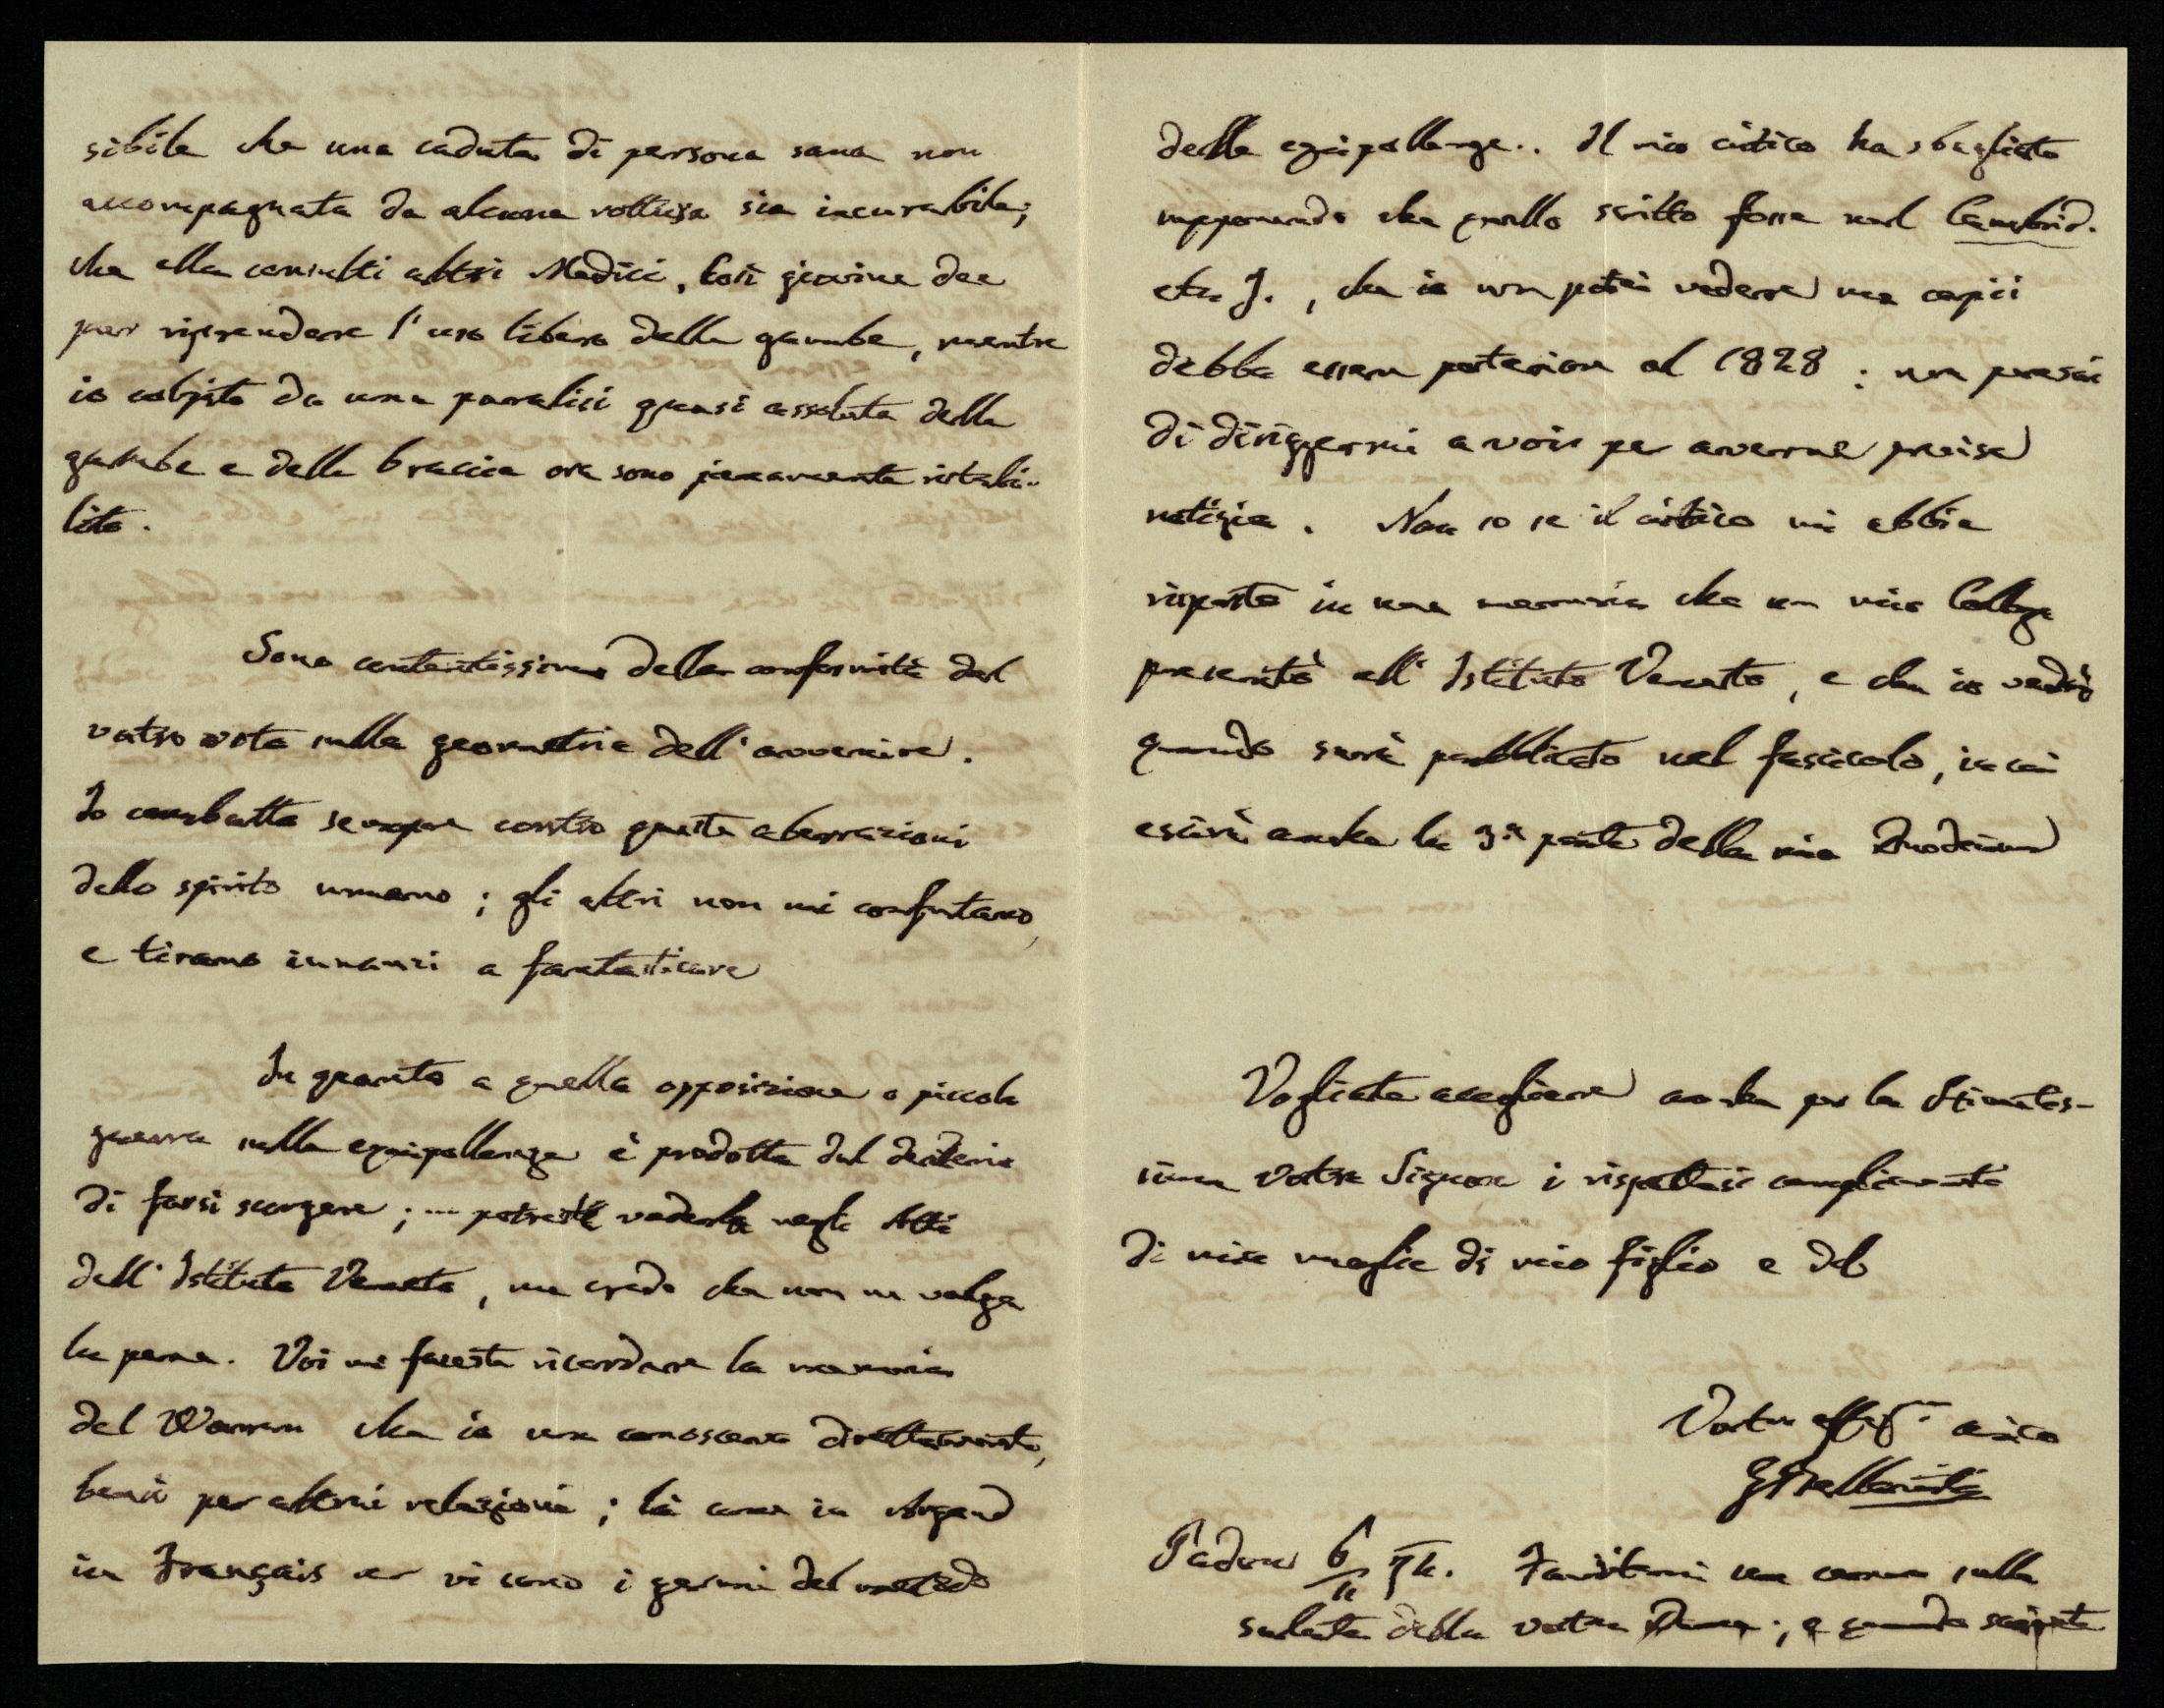 sibile che una caduta di persona sana non
accompagnata da alcuna rottura sia incurabile;
che ella consulti altri Medici. Così giovine dee
pur riprendere l'uso libero delle gambe, mentre
io colpito da una paralisi quasi assoluta delle
gambe e delle braccia ora sono pienamente ristabi-
lito.
Sono contentissimo della conformità del
vostro voto sulla geometria dell'avvenire.
Io combatto sempre contro queste aberrazioni
dello spirito umano; gli altri non mi confutano,
e tirano innanzi a fantasticare
In quanto a quella opposizione o piccola
guerra sulle equipollenze è prodotta dal desiderio
di farsi scorgere; potreste vederla negli Atti
dell'Istituto Veneto, ma credo che non ne valga
la pena. Voi mi faceste ricordare la memoria
del Warren che io non conosceva direttamente,
bensì per altrui relazioni; là come in Argand
in Français vi sono i germi del metodo
delle equipollenze.. Il mio critico ha sbagliato
supponendo che quello scritto fosse nel Cambrid.
etc J., che io non potei vedere ma capii
debba essere posteriore al 1828: non pensai
di dirigermi a voi per averne precisa
notizia. Non so se il critico mi abbia
risposto in una memoria che un mio Collega
presentò all'Istituto Veneto, e che io vedrò
quando sarà pubblicato nel fascicolo, in cui
escirà anche la 3ª parte della mia
Vogliate accogliere anche per la Stimatis-
sima vostra Signora i rispettosi complimenti
di mia moglie di mio figlio e del
Vostro aff.mo amico
GBellavitis
Padova 6/11 74. Favoritemi un cenno sulla
salute della vostra ; e quando scrivete